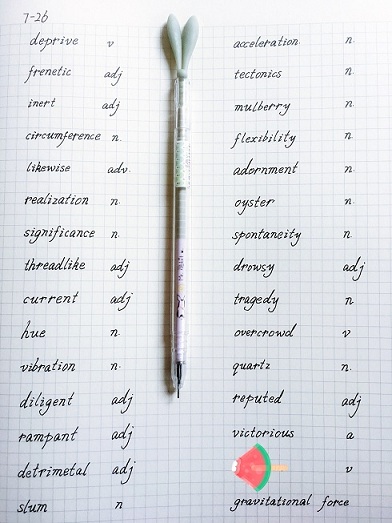 7-26
deprive v
frenetic adj
inert adj
circumference n.
likewise adv.
realization n.
significance n.
threadlike adj
current adj
hue n.
vibration n.
diligent adj
rampant adj
detrimetal adj
slum n
acceleration n.
tectonics n.
mulberry n.
flexibility n.
adornment n.
oyster n.
spontaneity n.
drowsy adj
tragedy n.
overcrowd v
quartz n.
reputed adj
victorious a
v
gravitational force